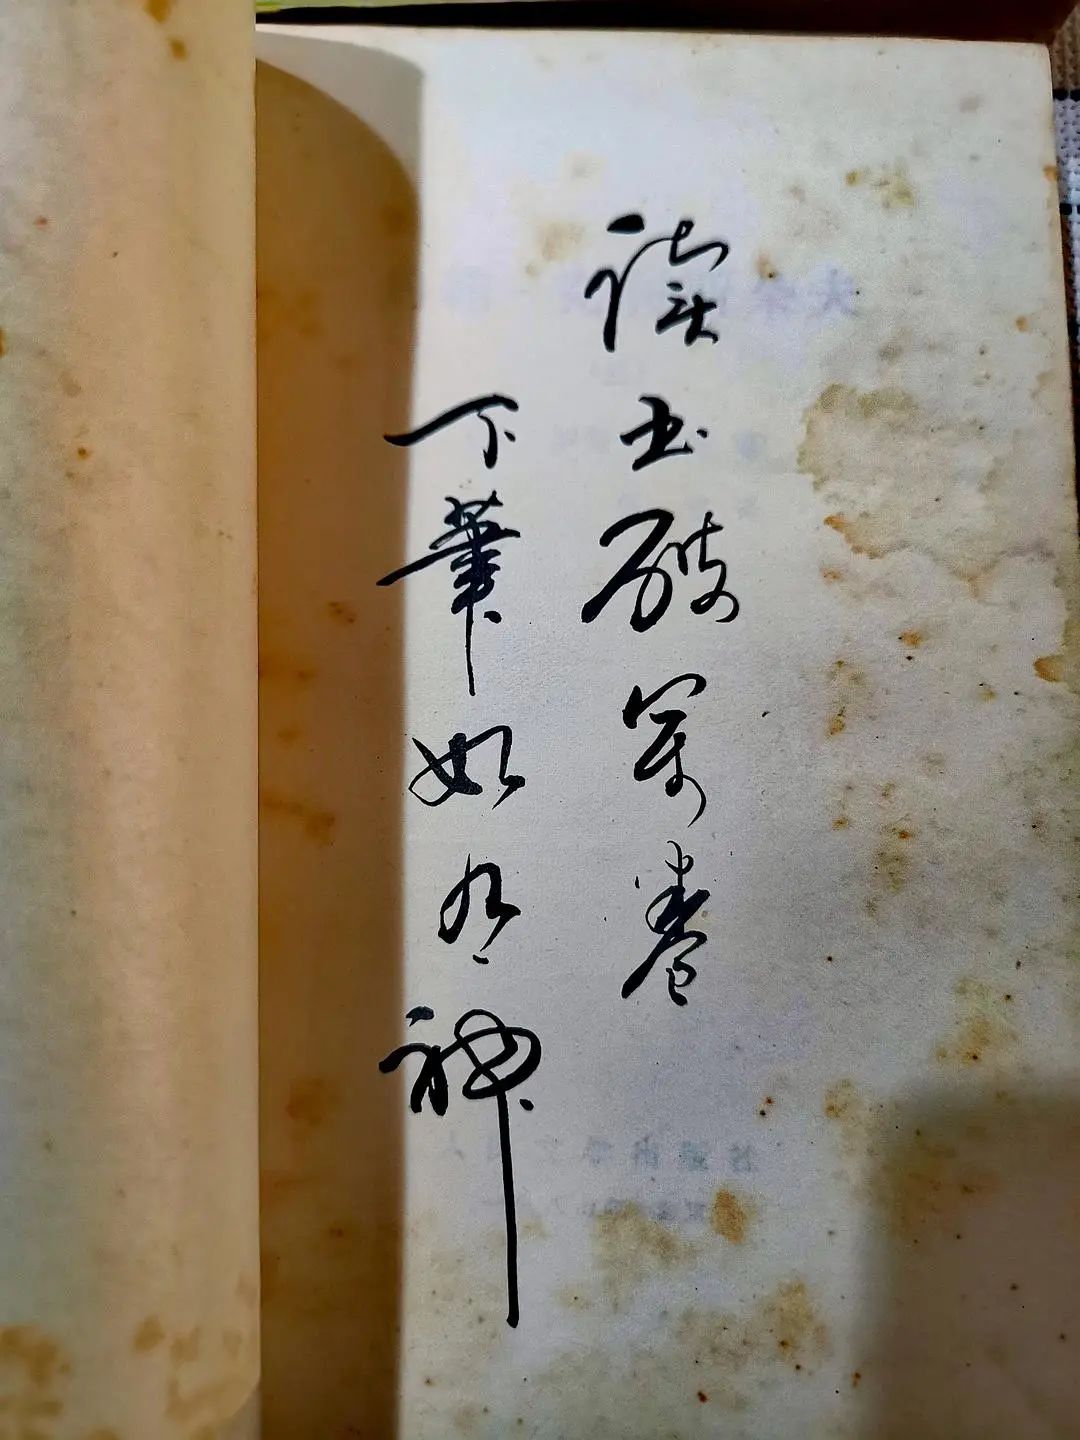 读书破万卷
下筆如有神